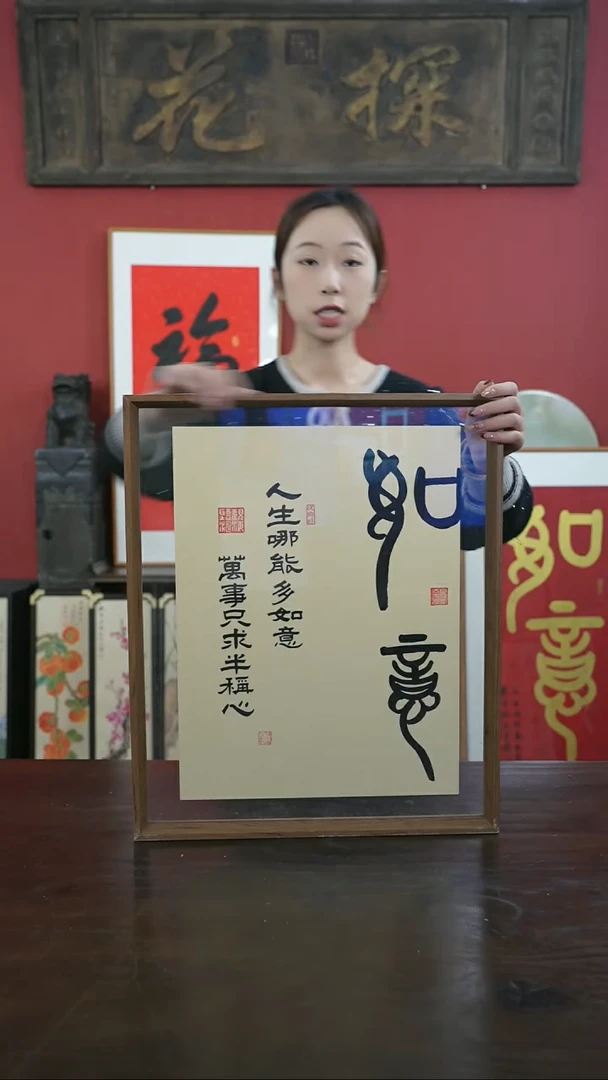 探花
福
如意
人生哪能多如意
萬事只求半稱心
如意